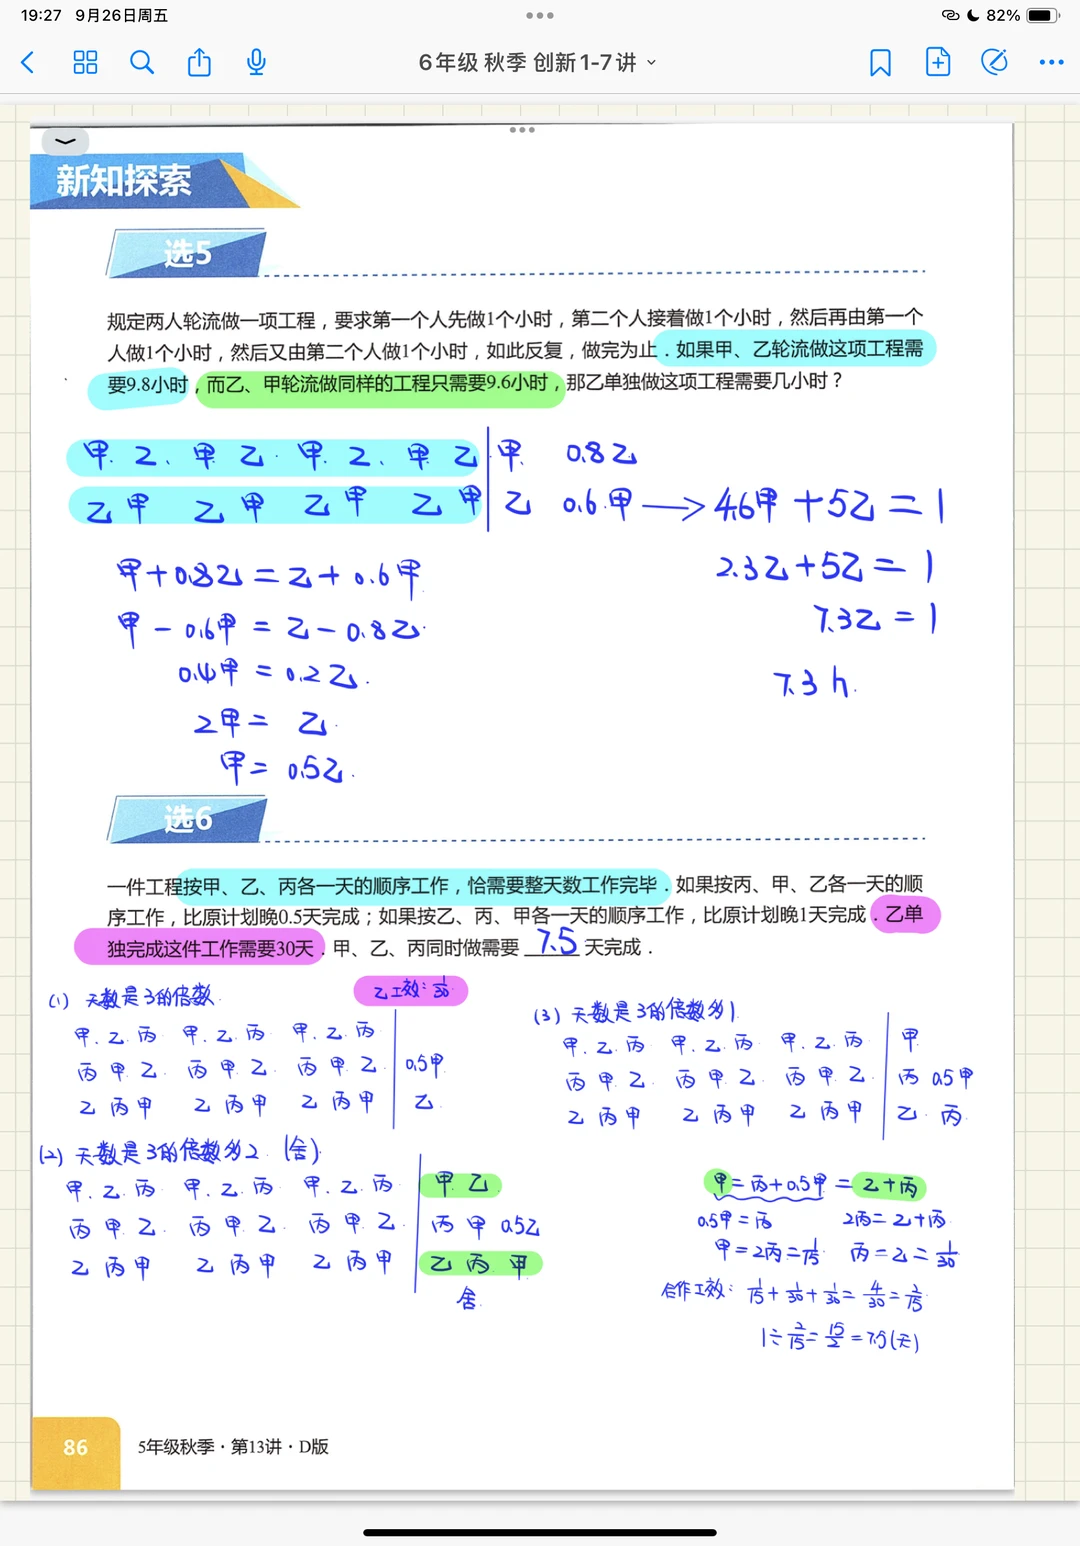 19:27 9月26日周五
82%
6年级 秋季 创新1-7讲
新知探索
选5
规定两人轮流做一项工程，要求第一个人先做1个小时，第二个人接着做1个小时，然后再由第一个
人做1个小时，然后又由第二个人做1个小时，如此反复，做完为止．如果甲、乙轮流做这项工程需
要9.8小时，而乙、甲轮流做同样的工程只需要9.6小时，那乙单独做这项工程需要几小时？
甲.乙、甲 乙.甲.乙、甲 乙 甲. 0.8乙
乙 甲 乙 甲 乙 甲 乙 甲 乙 0.6.甲 → 4.6甲+5乙=1
甲+0.8乙=乙+0.6甲
2.3乙+5乙=1
甲-0.6甲=乙-0.8乙.
7.3乙=1
0.4甲=0.2乙.
7.3 h.
2甲= 乙.
甲= 0.5乙.
选6
一件工程按甲、乙、丙各一天的顺序工作，恰需要整天数工作完毕．如果按丙、甲、乙各一天的顺
序工作，比原计划晚0.5天完成；如果按乙、丙、甲各一天的顺序工作，比原计划晚1天完成．乙单
独完成这件工作需要30天．甲、乙、丙同时做需要 7.5 天完成．
乙工效: 1/30
(1) 天数是3的倍数
甲.乙.丙 甲.乙.丙 甲.乙.丙
丙 甲 乙 丙 甲 乙 丙 甲 乙 0.5甲
乙 丙 甲 乙 丙 甲 乙 丙 甲 乙.
(2) 天数是3的倍数多2 (舍)
甲.乙.丙 甲.乙.丙 甲.乙.丙 甲 乙.
丙 甲 乙 丙 甲 乙 丙 甲 乙 丙 甲 0.5乙
乙 丙 甲 乙 丙 甲 乙 丙 甲 乙 丙 甲
舍.
(3) 天数是3的倍数多1.
甲.乙.丙 甲.乙.丙 甲.乙.丙 甲.
丙 甲 乙 丙 甲 乙 丙 甲 乙 丙 0.5甲
乙 丙 甲 乙 丙 甲 乙 丙 甲 乙.丙
甲=丙+0.5甲=乙+丙
0.5甲=丙 2丙=乙+丙
甲=2丙=1/15 丙=乙=1/30
合作工效: 1/15+1/30+1/30=4/30=2/15
1÷2/15=15/2=7.5(天)
86
5年级秋季·第13讲·D版